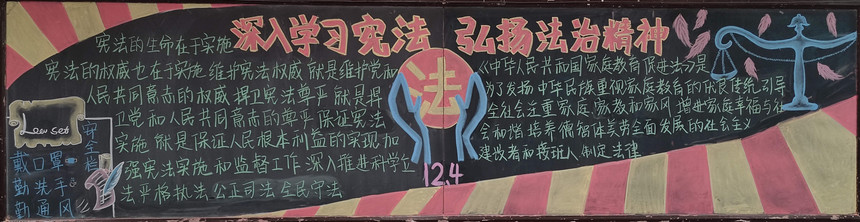 深入学习宪法 弘扬法治精神
宪法的生命在于实施
宪法的权威也在于实施 维护宪法权威 就是维护党和
人民共同意志的权威 捍卫宪法尊严 就是捍
卫党和人民共同意志的尊严 保证宪法
实施 就是保证人民根本利益的实现 加
强宪法实施和监督工作 深入推进科学立
法 严格执法 公正司法 全民守法
法
12.4
《中华人民共和国家庭教育促进法》是
为了发扬中华民族重视家庭教育的优良传统 引导
全社会注重家庭 家教和家风 增进家庭幸福与社
会和谐 培养德智体美劳全面发展的社会主义
建设者和接班人 制定法律
安全栏
戴口罩
勤洗手
勤通风